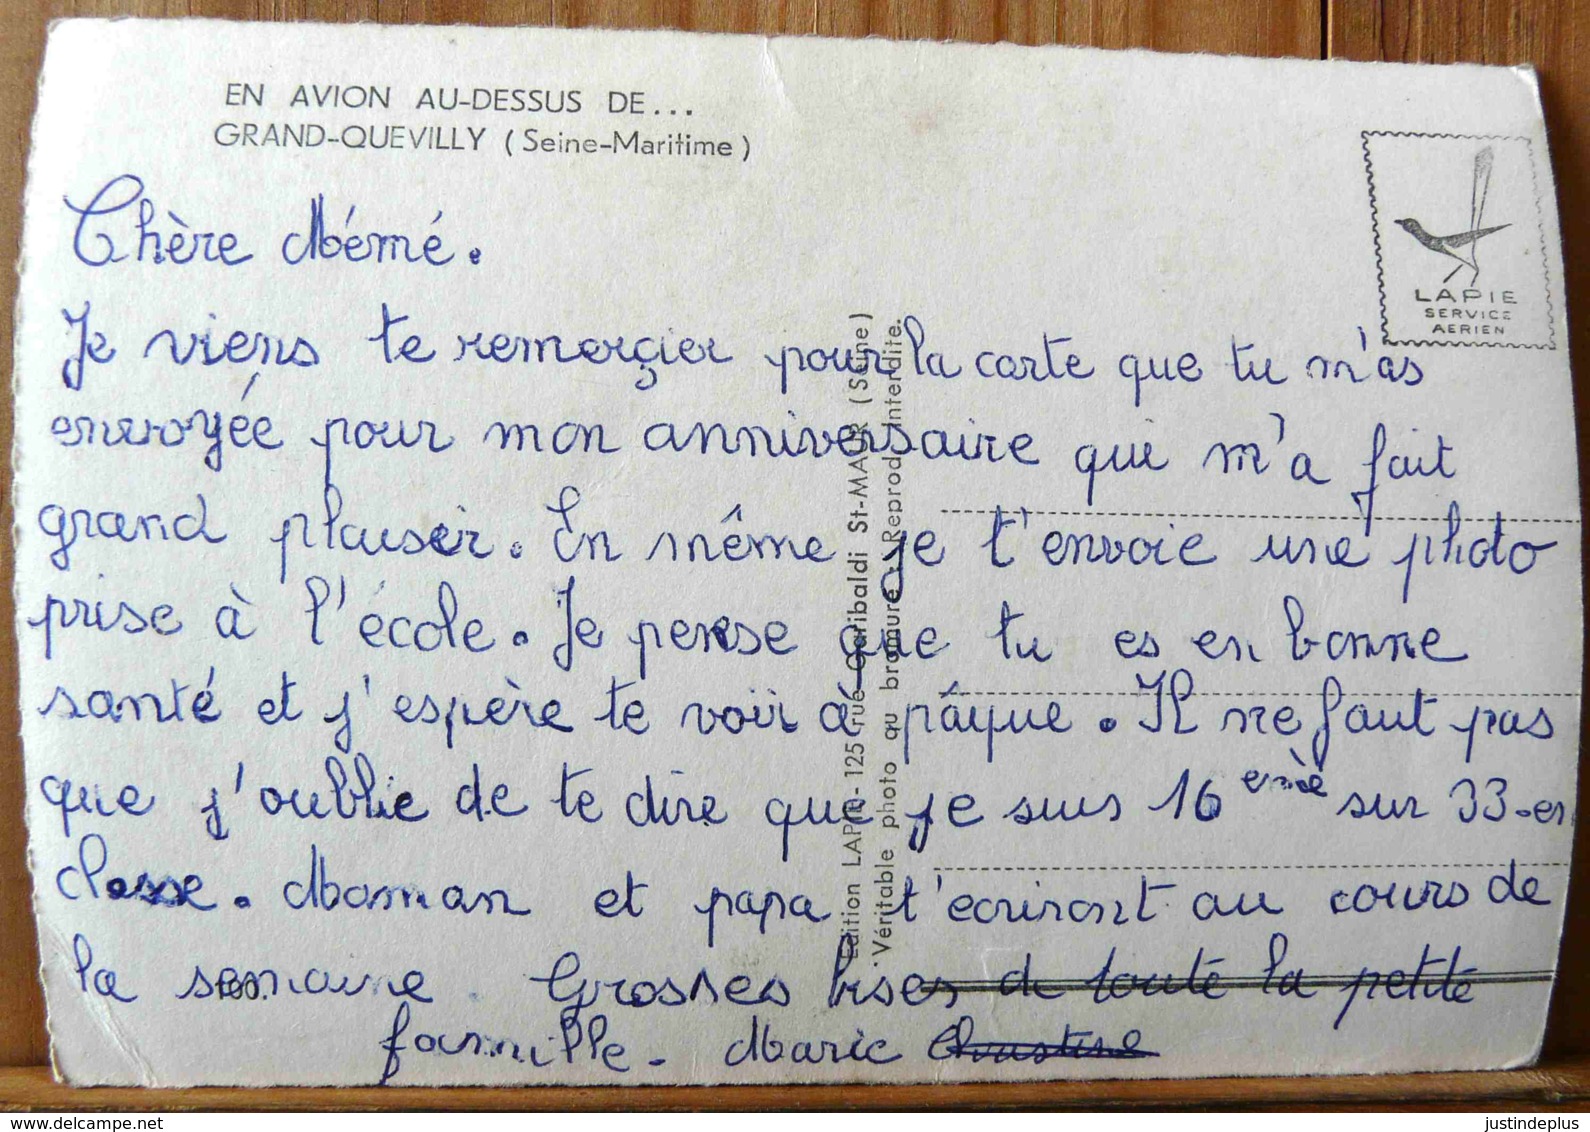 EN AVION AU-DESSUS DE...
GRAND-QUEVILLY (Seine-Maritime)
LAPIE
SERVICE
AERIEN
Chère Mémé.
Je viens te remerçier pour la carte que tu m'as
envoyée pour mon anniversaire qui m'a fait
grand plaisir. En même je t'envoie une photo
prise à l'école. Je pense que tu es en bonne
santé et j'espère te voir à pâque. Il ne faut pas
que j'oublie de te dire que je suis 16 ème sur 33 en
classe. Maman et papa t'écriront au cours de
la semaine. Grosses bises de toute la petite
famille. Marie Christine
Edition LAPIE - 125 rue Garibaldi St-MAUR (Seine)
Véritable photo au bromure - Reprod. Interdite.
www.delcampe.net
justindeplus